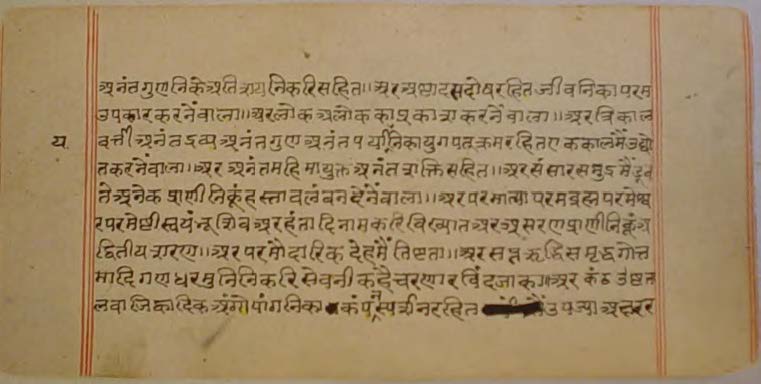 अनंतगुणनिके अतिशयनिकरिसहित॥अर अष्टादसदोषरहित जीवनिका परम
उपकारकरनेंवाला॥अर लोक अलोक का प्रकाश करनेंवाला॥अर त्रिकाल
य
वर्त्ती अनंतद्रव्य अनंतगुण अनंतपर्यायनिका युगपत् क्रमरहित एककालमैं उद्यो
तकरनेंवाला॥अर अनंतमहिमायुक्त अनंतशक्तिसहित॥अर संसारसमुद्रमैं डूब
ते अनेक प्राणीनिकूं हस्तावलंबन देनेंवाला॥अर परमात्मा परमब्रह्म परमेश्व
र परमेष्ठी स्वयंभू शिव अरहंतादि नामकरि विख्यात अर असरणप्राणीनिकूं अ
द्वितीय शरण॥अर परमौदारिक देहमैं तिष्टता॥अर सप्तऋद्धिसमृद्ध गोत
मादि गणधर मुनिनिकरि सेवनीक है चरणारविंद जाका॥अर कंठ उष्टत
लवा जिह्वादिक अंगोपांगनिका कंप स्पर्शनरहित उपज्या अक्षर